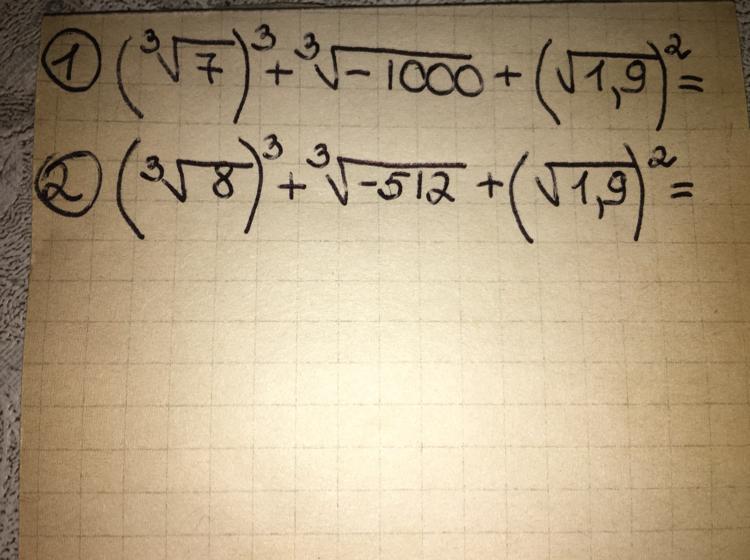 ① (³√7)³ + ³√-1000 + (√1,9)² =
② (³√8)³ + ³√-512 + (√1,9)² =